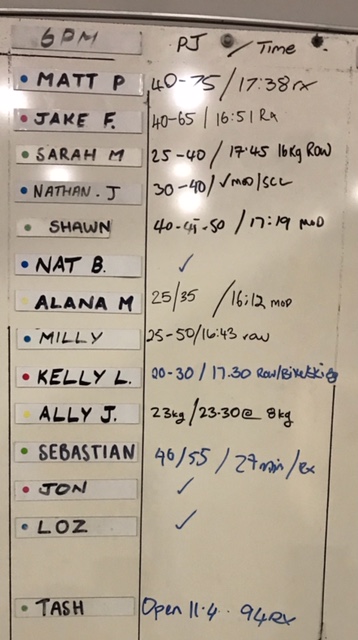 6PM PJ / Time
MATT P 40-75 / 17:38 rx
JAKE F. 40-65 / 16:51 Rx
SARAH M 25-40 / 17:45 16kg ROW
NATHAN. J 30-40 / ✓ MOD/SCL
SHAWN 40-45-50 / 17:19 MOD
NAT B. ✓
ALANA M 25/35 / 16:12 MOD
MILLY 25-50/16:43 row
KELLY L. 20-30 / 17.30 Row/Bike/Ski
ALLY J. 23kg / 23.30 @ 8kg
SEBASTIAN 40/55 / 27min / Rx
JON ✓
LOZ ✓
TASH Open 11.4.. 94RX